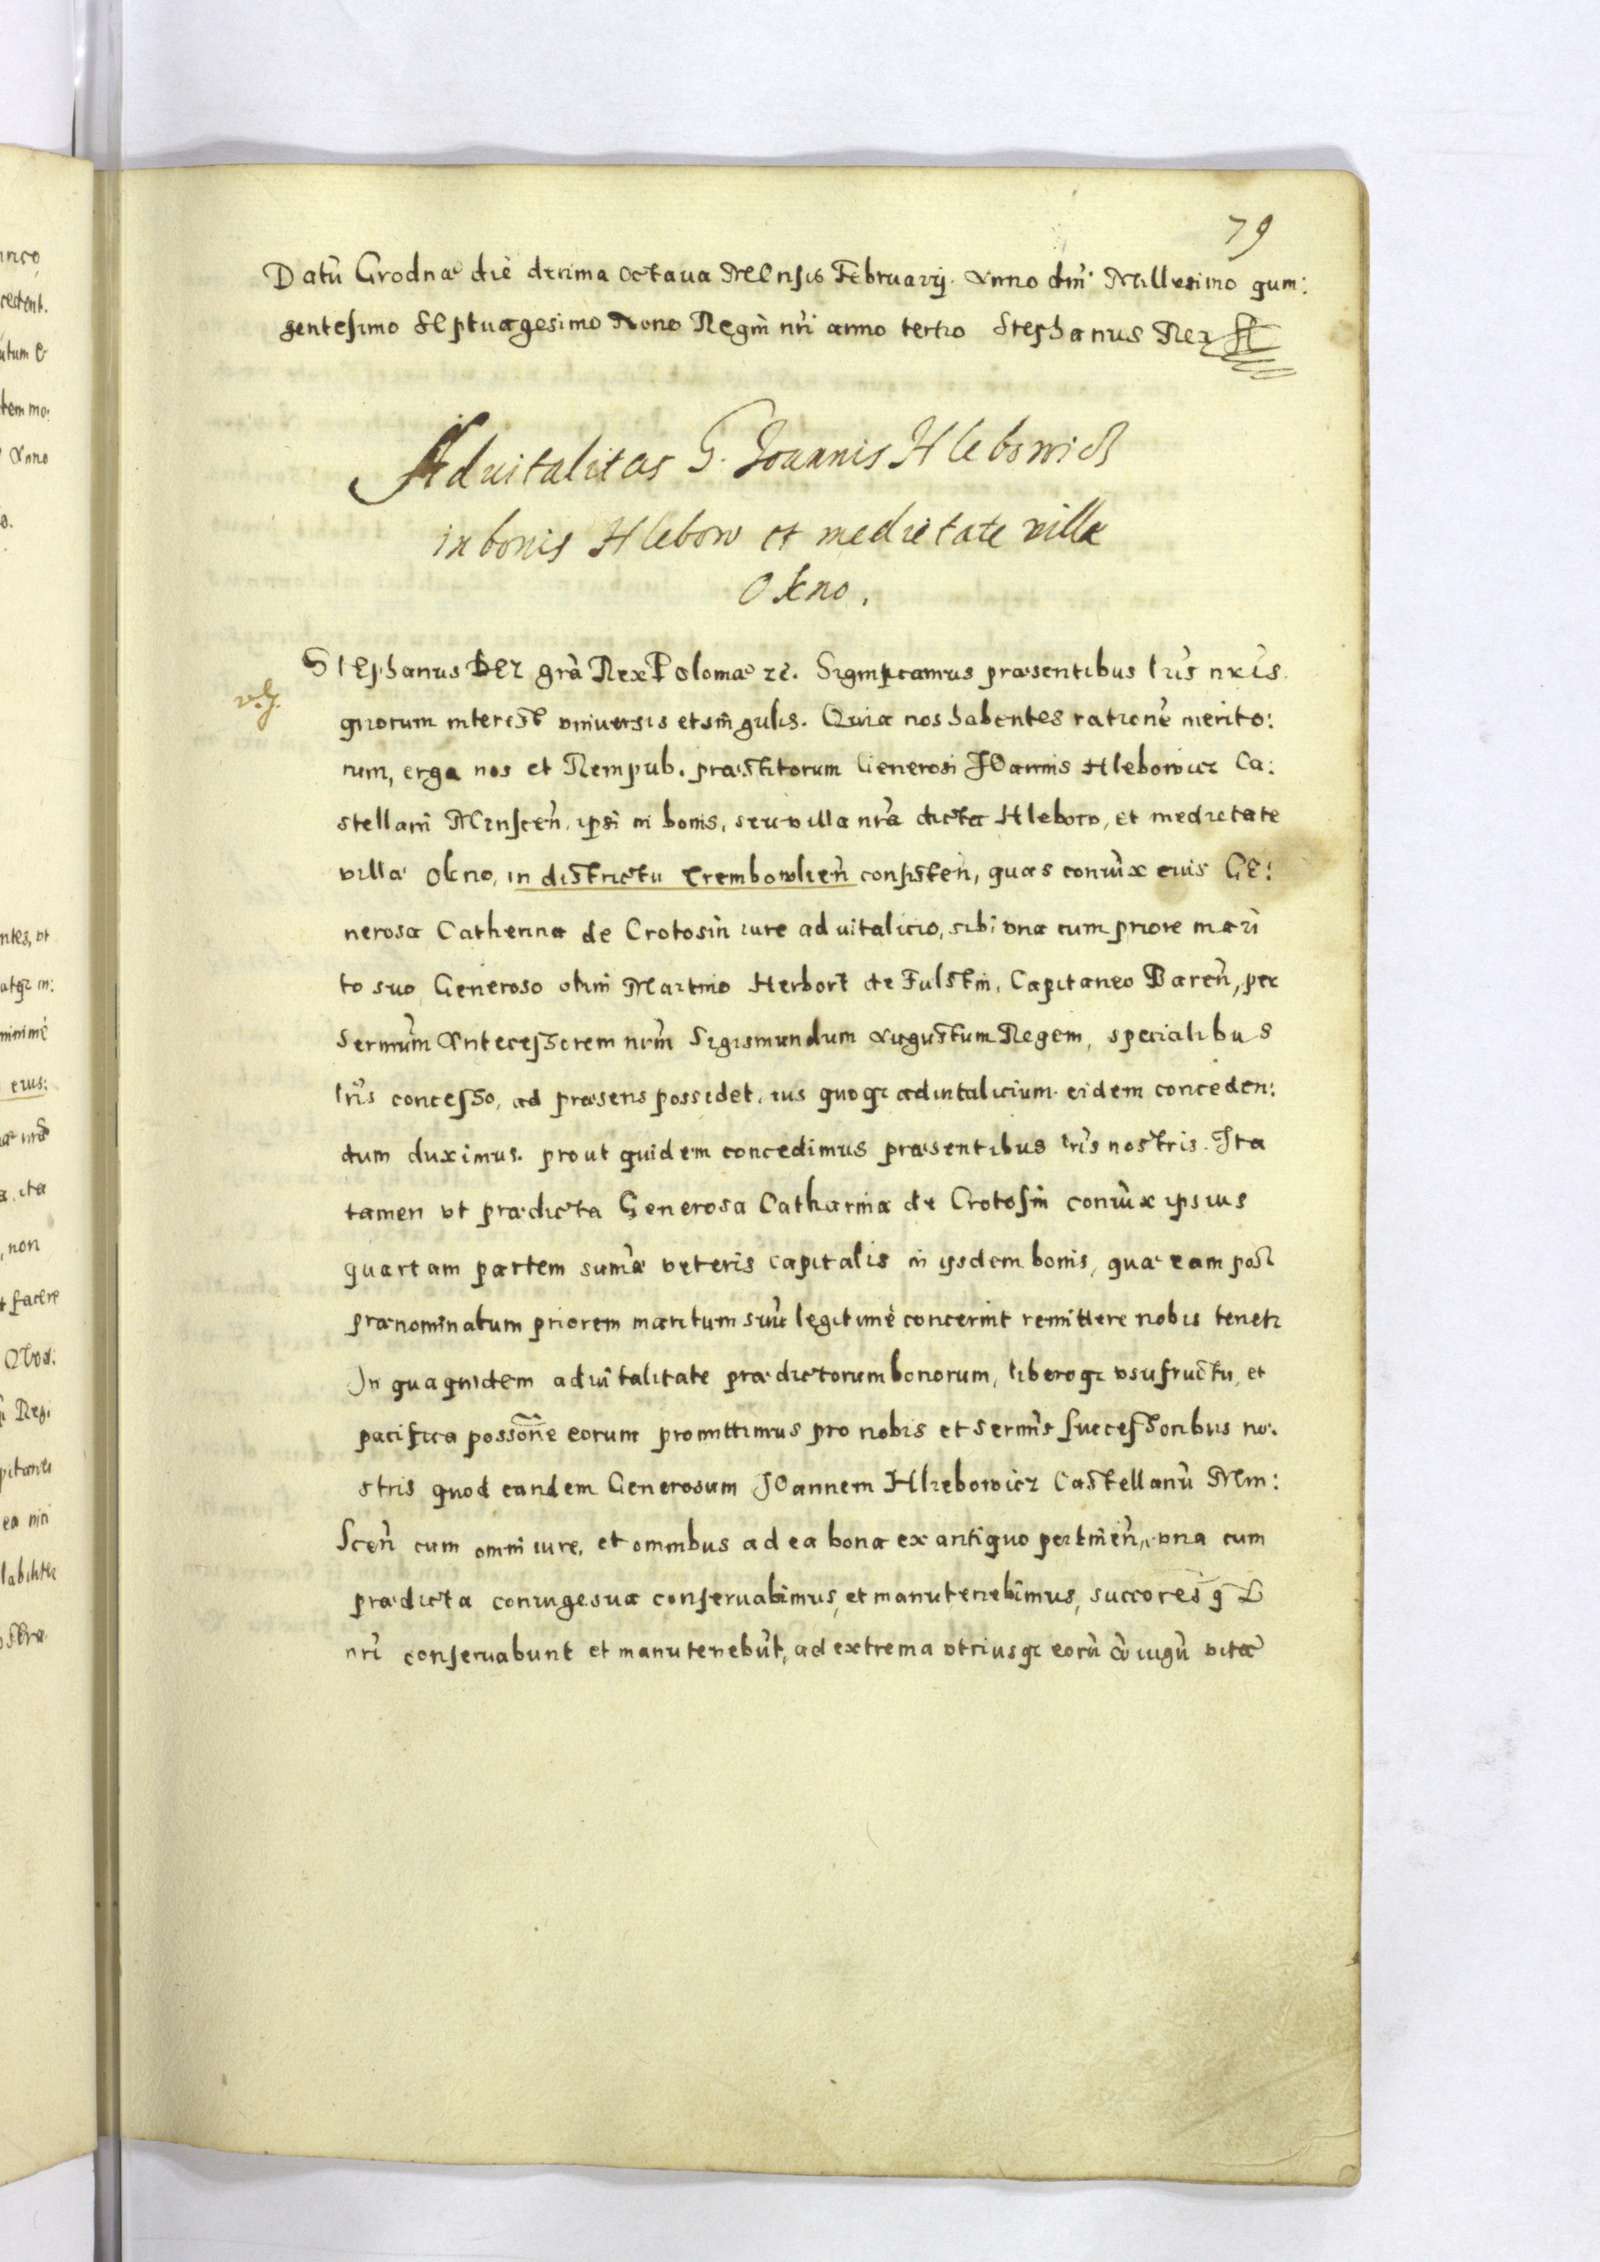 79
Datū Grodnae die decima octaua Mensis Februarij. Anno dm̄i Millesimo quin:
gentesimo septuagesimo Nono Regni nr̄i anno tertio Stephanus Rex
Aduitalitas G. Joannis Hlebowicz
in bonis Hlebow et medietate villae
Okno.
Stephanus Dei grā Rex Poloniae zc. Significamus praesentibus lr̄is nr̄is
quorum interest vniuersis et singulis. Quia nos habentes rationē merito:
rum, erga nos et Rempub. praestitorum Generosi Joannis Hlebowicz Ca:
stellani Minscen̄, ipsi in bonis, seu villa nr̄a dicta Hlebow, et medietate
villae Okno, in districtu Trembowlien̄ consisten̄, quas coniūx eius Ge:
nerosa Catherina de Crotosin iure aduitalicio, sibi vna cum priore mari
to suo Generoso olim Martino Herbort de Fulstin, Capitaneo Baren̄, per
Sermūm Antecessorem nr̄m Sigismundum Augustum Regem, specialibus
lr̄is concesso, ad praesens possidet, ius quoqz aduitalicium eidem conceden:
dum duximus. prout quidem concedimus praesentibus lr̄is nostris. Ita
tamen vt praedicta Generosa Catharina de Crotosin coniūx ipsius
quartam partem sumae veteris capitalis in ijsdem bonis, quae eam post
praenominatum priorem maritum suū legitimè concernit remittere nobis tenetr
In qua quidem aduitalitate praedictorum bonorum, liberoqz vsufructu, et
pacifica possōne eorum promittimus pro nobis et Sermīs successoribus no:
stris quod eandem Generosum Joannem Hlebowicz Castellanū Min:
scen̄ cum omni iure, et omnibus ad ea bona ex antiquo pertinen̄, vna cum
praedicta coniuge sua conseruabimus, et manutenebimus, succores q
nr̄i conseruabunt et manutenebūt, ad extrema vtriusqz eorū cōiugū vitae